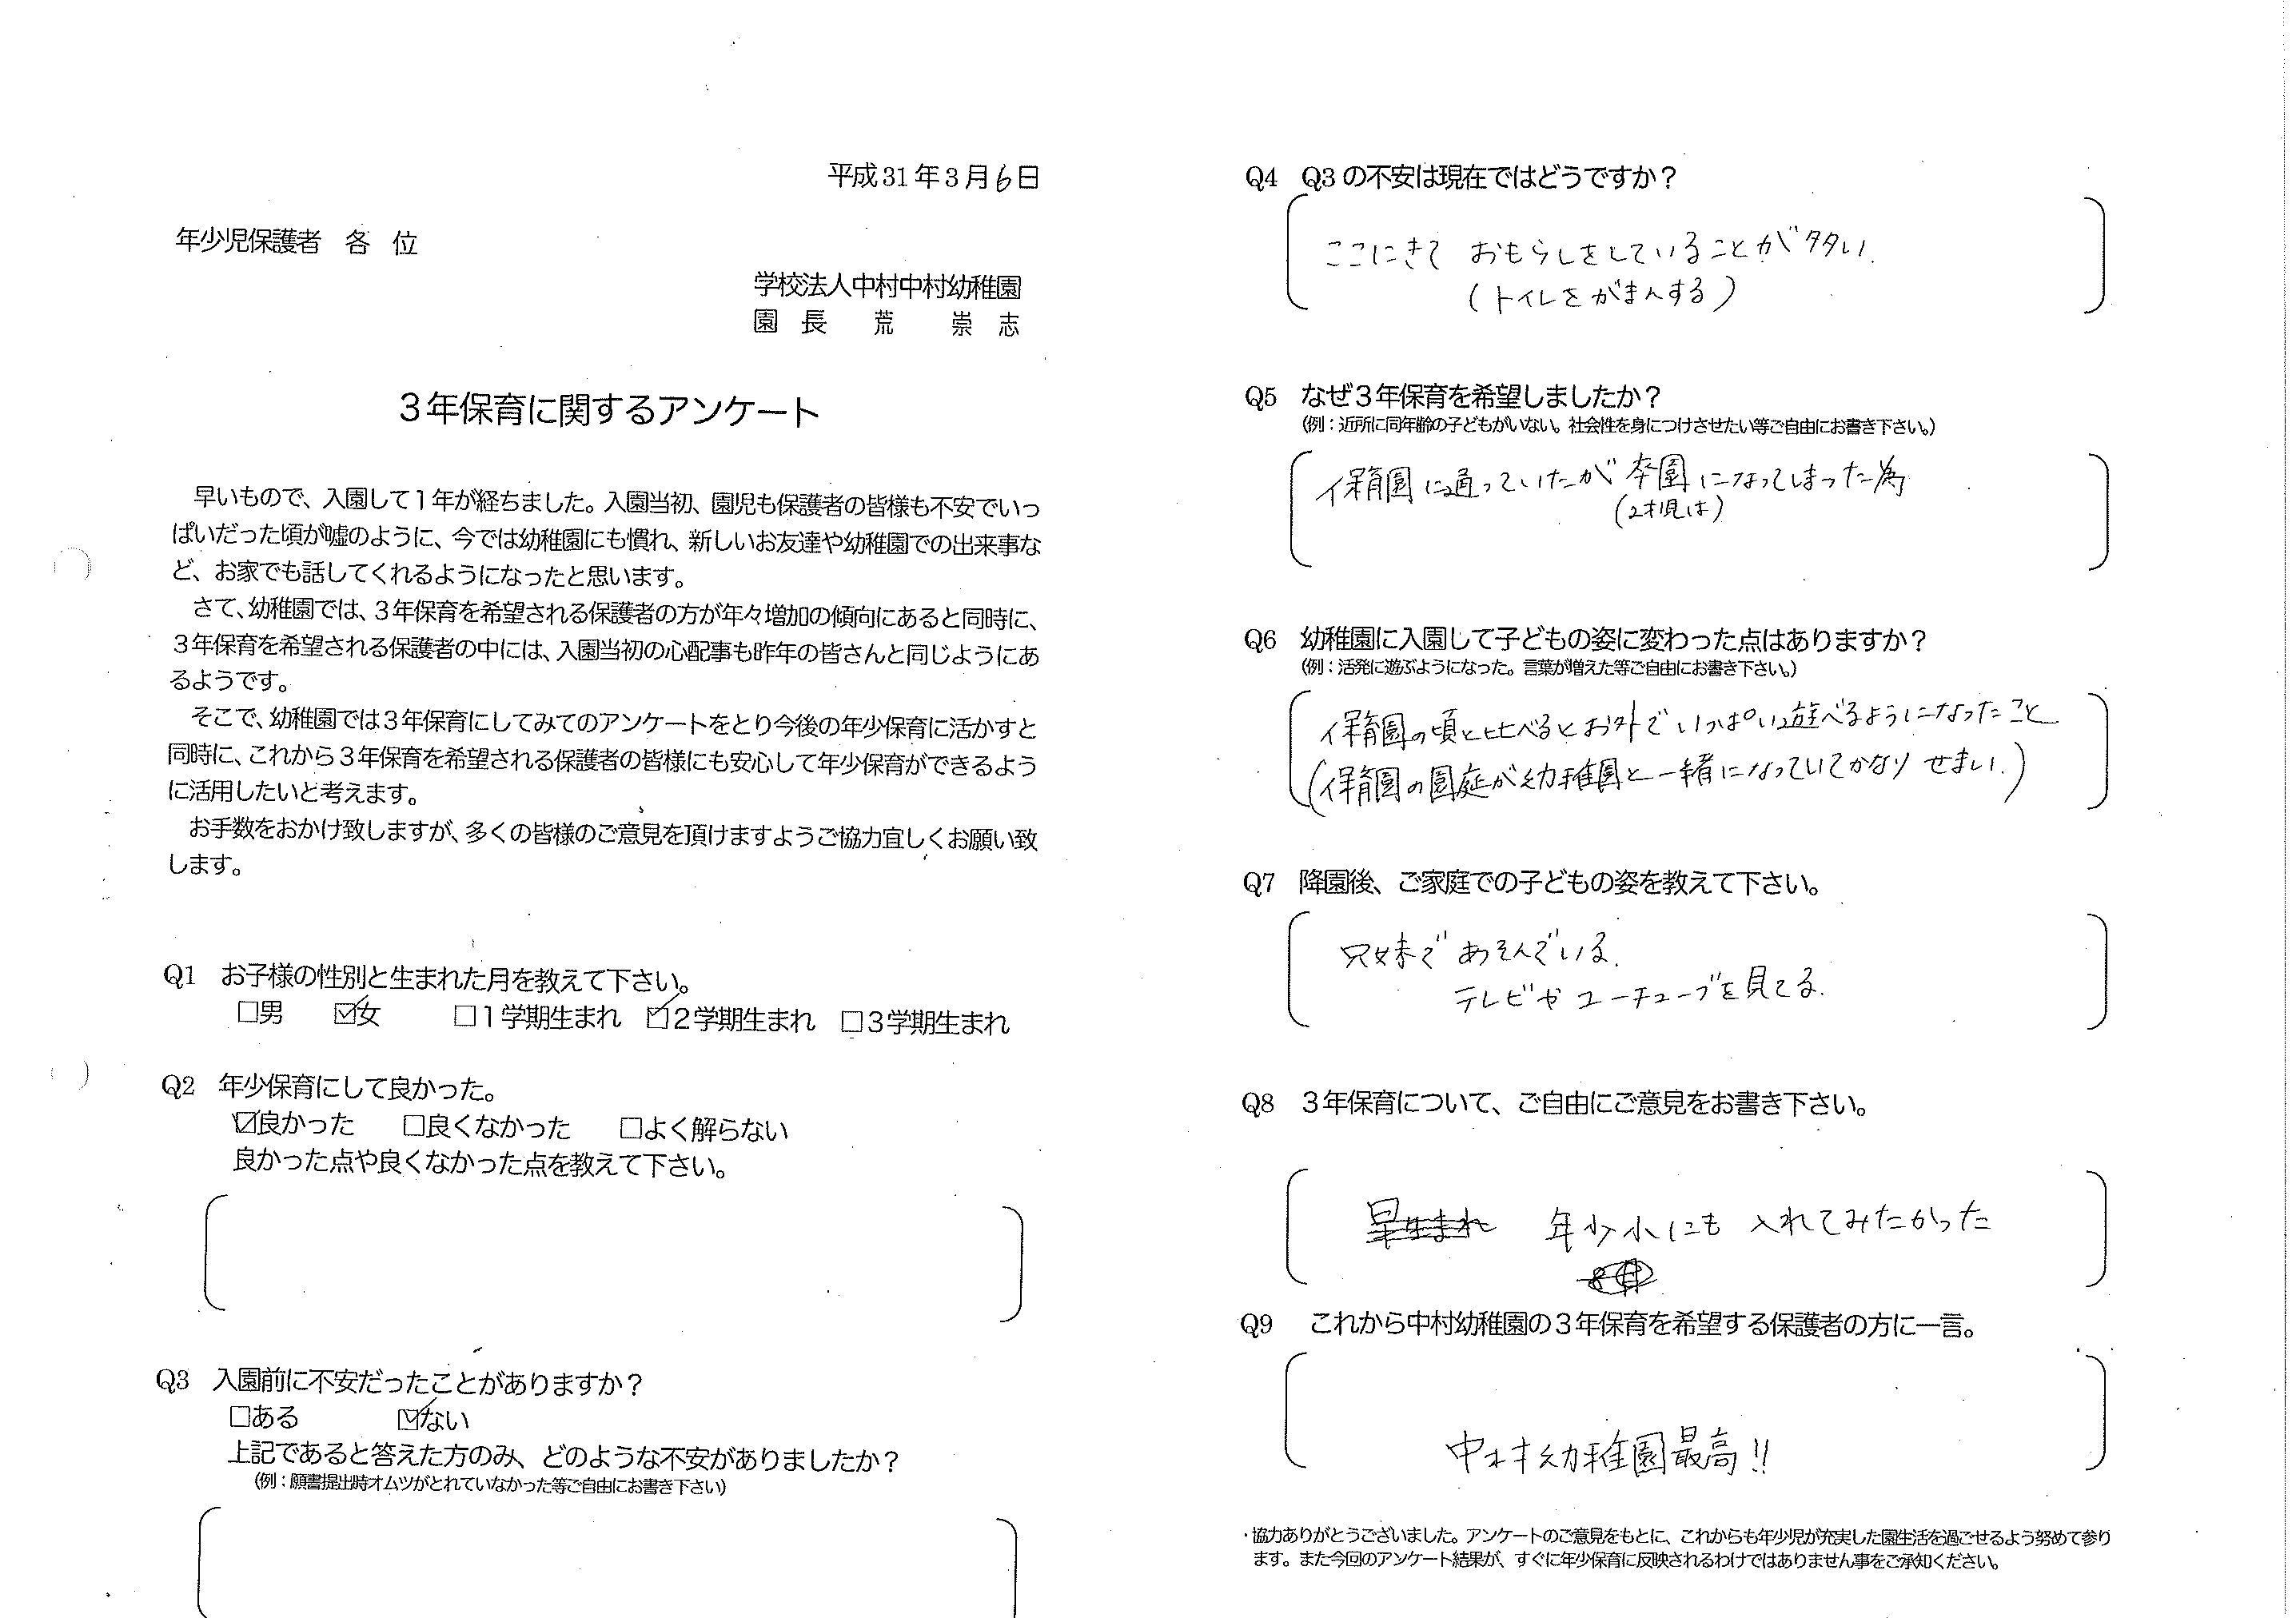 平成31年3月6日
年少児保護者 各 位
学校法人中村中村幼稚園
園 長 荒 崇 志
3年保育に関するアンケート
早いもので、入園して1年が経ちました。入園当初、園児も保護者の皆様も不安でいっ
ぱいだった頃が嘘のように、今では幼稚園にも慣れ、新しいお友達や幼稚園での出来事な
ど、お家でも話してくれるようになったと思います。
さて、幼稚園では、3年保育を希望される保護者の方が年々増加の傾向にあると同時に、
3年保育を希望される保護者の中には、入園当初の心配事も昨年の皆さんと同じようにあ
るようです。
そこで、幼稚園では3年保育にしてみてのアンケートをとり今後の年少保育に活かすと
同時に、これから3年保育を希望される保護者の皆様にも安心して年少保育ができるよう
に活用したいと考えます。
お手数をおかけ致しますが、多くの皆様のご意見を頂けますようご協力宜しくお願い致
します。
Q1 お子様の性別と生まれた月を教えて下さい。
□男 ☑女 □1学期生まれ ☑2学期生まれ □3学期生まれ
Q2 年少保育にして良かった。
☑良かった □良くなかった □よく解らない
良かった点や良くなかった点を教えて下さい。
Q3 入園前に不安だったことがありますか?
□ある ☑ない
上記であると答えた方のみ、どのような不安がありましたか?
(例:願書提出時オムツがとれていなかった等ご自由にお書き下さい)
Q4 Q3の不安は現在ではどうですか?
ここにきて おもらしをしていることが多い.
(トイレをがまんする)
Q5 なぜ3年保育を希望しましたか?
(例:近所に同年齢の子どもがいない。社会性を身につけさせたい等ご自由にお書き下さい。)
保育園に通っていたが卒園になってしまった為
(2才児は)
Q6 幼稚園に入園して子どもの姿に変わった点はありますか?
(例:活発に遊ぶようになった。言葉が増えた等ご自由にお書き下さい。)
保育園の頃と比べるとお外でいっぱい遊べるようになったこと
(保育園の園庭が幼稚園と一緒になっていてかなりせまい.)
Q7 降園後、ご家庭での子どもの姿を教えて下さい。
兄妹であそんでいる.
テレビやユーチューブを見てる.
Q8 3年保育について、ご自由にご意見をお書き下さい。
早生まれ 年少小にも 入れてみたかった
Q9 これから中村幼稚園の3年保育を希望する保護者の方に一言。
中村幼稚園最高!!
・協力ありがとうございました。アンケートのご意見をもとに、これからも年少児が充実した園生活を過ごせるよう努めて参り
ます。また今回のアンケート結果が、すぐに年少保育に反映されるわけではありません事をご承知ください。